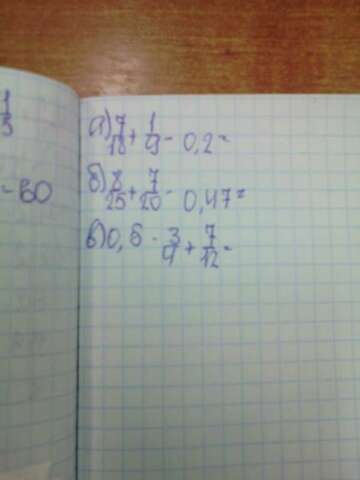 1/3
-80
а) 7/18 + 1/9 - 0,2 =
б) 8/25 + 7/20 - 0,47 =
в) 0,5 - 3/4 + 7/12 =